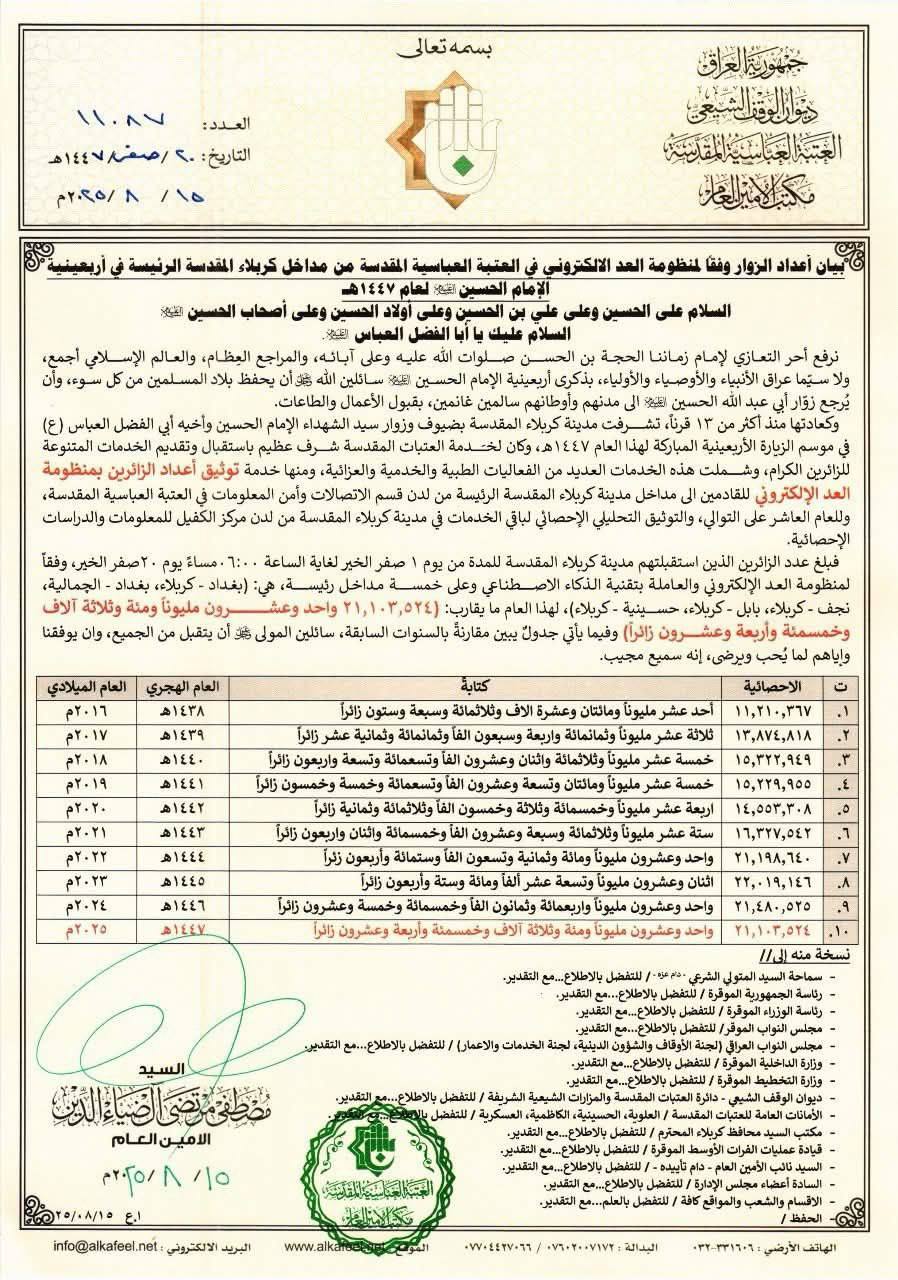 بسمه تعالى
جمهورية العراق
ديوان الوقف الشيعي
العتبة العباسية المقدسة
مكتب الأمين العام
العدد: ١١٠٨٧
التاريخ: ٢٠/صفر/١٤٤٧هـ
١٥ / ٨ /٢٠٢٥م
بيان أعداد الزوار وفقا لمنظومة العد الالكتروني في العتبة العباسية المقدسة من مداخل كربلاء المقدسة الرئيسة في أربعينية
الإمام الحسين لعام ١٤٤٧هـ
السلام على الحسين وعلى علي بن الحسين وعلى أولاد الحسين وعلى أصحاب الحسين
السلام عليك يا أبا الفضل العباس .
نرفع أحر التعازي لإمام زماننا الحجة بن الحسن صلوات الله عليه وعلى آبائه، والمراجع العِظام، والعالم الإسلامي أجمع،
ولا سيّما عراق الأنبياء والأوصياء والأولياء، بذكرى أربعينية الإمام الحسين سائلين الله ﷻ أن يحفظ بلاد المسلمين من كل سوء، وأن
يُرجع زوّار أبي عبد الله الحسين الى مدنهم وأوطانهم سالمين غانمين، بقبول الأعمال والطاعات.
وكعادتها منذ أكثر من ١٣ قرناً، تشرفت مدينة كربلاء المقدسة بضيوف وزوار سيد الشهداء الإمام الحسين وأخيه أبي الفضل العباس (ع)
في موسم الزيارة الأربعينية المباركة لهذا العام ١٤٤٧هـ، وكان لخدمة العتبات المقدسة شرف عظيم باستقبال وتقديم الخدمات المتنوعة
للزائرين الكرام، وشملت هذه الخدمات العديد من الفعاليات الطبية والخدمية والعزائية، ومنها خدمة توثيق أعداد الزائرين بمنظومة
العد الإلكتروني للقادمين الى مداخل مدينة كربلاء المقدسة الرئيسة من لدن قسم الاتصالات وأمن المعلومات في العتبة العباسية المقدسة،
وللعام العاشر على التوالي، والتوثيق التحليلي الإحصائي لباقي الخدمات في مدينة كربلاء المقدسة من لدن مركز الكفيل للمعلومات والدراسات
الإحصائية.
فبلغ عدد الزائرين الذين استقبلتهم مدينة كربلاء المقدسة للمدة من يوم ١ صفر الخير لغاية الساعة ٠٦:٠٠مساءً يوم ٢٠صفر الخير، وفقاً
لمنظومة العد الإلكتروني والعاملة بتقنية الذكاء الاصطناعي وعلى خمسة مداخل رئيسة، هي: (بغداد - كربلاء، بغداد - الجمالية،
نجف - كربلاء، بابل - كربلاء، حسينية - كربلاء)، لهذا العام ما يقارب: (٢١,١٠٣,٥٢٤ واحد وعشرون مليوناً ومئة وثلاثة آلاف
وخمسمئة وأربعة وعشرون زائراً) وفيما يأتي جدولٌ يبين مقارنةً بالسنوات السابقة، سائلين المولى ﷻ أن يتقبل من الجميع، وان يوفقنا
وإياهم لما يُحب ويرضى، إنه سميع مجيب.
ت الاحصائية كتابةً العام الهجري العام الميلادي
١. ١١,٢١٠,٣٦٧ أحد عشر مليوناً ومائتان وعشرة الاف وثلاثمائة وسبعة وستون زائراً ١٤٣٨هـ ٢٠١٦م
٢. ١٣,٨٧٤,٨١٨ ثلاثة عشر مليوناً وثمانمائة واربعة وسبعون الفاً وثمانمائة وثمانية عشر زائراً ١٤٣٩هـ ٢٠١٧م
٣. ١٥,٣٢٢,٩٤٩ خمسة عشر مليوناً وثلاثمائة واثنان وعشرون الفاً وتسعمائة وتسعة واربعون زائراً ١٤٤٠هـ ٢٠١٨م
٤. ١٥,٢٢٩,٩٥٥ خمسة عشر مليوناً ومائتان وتسعة وعشرون الفاً وتسعمائة وخمسة وخمسون زائراً ١٤٤١هـ ٢٠١٩م
٥. ١٤,٥٥٣,٣٠٨ اربعة عشر مليوناً وخمسمائة وثلاثة وخمسون الفاً وثلاثمائة وثمانية زائراً ١٤٤٢هـ ٢٠٢٠م
٦. ١٦,٣٢٧,٥٤٢ ستة عشر مليوناً وثلاثمائة وسبعة وعشرون الفاً وخمسمائة واثنان واربعون زائراً ١٤٤٣هـ ٢٠٢١م
٧. ٢١,١٩٨,٦٤٠ واحد وعشرون مليوناً ومائة وثمانية وتسعون الفاً وستمائة وأربعون زئراً ١٤٤٤هـ ٢٠٢٢م
٨. ٢٢,٠١٩,١٤٦ اثنان وعشرون مليوناً وتسعة عشر ألفاً ومائة وستة وأربعون زائراً ١٤٤٥هـ ٢٠٢٣م
٩. ٢١,٤٨٠,٥٢٥ واحد وعشرون مليوناً واربعمائة وثمانون الفاً وخمسمائة وخمسة وعشرون زائراً ١٤٤٦هـ ٢٠٢٤م
١٠. ٢١,١٠٣,٥٢٤ واحد وعشرون مليوناً ومئة وثلاثة آلاف وخمسمئة وأربعة وعشرون زائراً ١٤٤٧هـ ٢٠٢٥م
نسخة منه إلى//
- سماحة السيد المتولي الشرعي - دام عزه - / للتفضل بالاطلاع...مع التقدير.
- رئاسة الجمهورية الموقرة / للتفضل بالاطلاع...مع التقدير.
- رئاسة الوزراء الموقرة / للتفضل بالاطلاع...مع التقدير.
- مجلس النواب الموقر/ للتفضل بالاطلاع...مع التقدير.
- مجلس النواب العراقي (لجنة الأوقاف والشؤون الدينية، لجنة الخدمات والاعمار) / للتفضل بالاطلاع...مع التقدير.
- وزارة الداخلية الموقرة / للتفضل بالاطلاع...مع التقدير.
- وزارة التخطيط الموقرة / للتفضل بالاطلاع...مع التقدير.
- ديوان الوقف الشيعي - دائرة العتبات المقدسة والمزارات الشيعية الشريفة / للتفضل بالاطلاع...مع التقدير.
- الأمانات العامة للعتبات المقدسة / العلوية، الحسينية، الكاظمية، العسكرية / للتفضل بالاطلاع...مع التقدير.
- مكتب السيد محافظ كربلاء المحترم / للتفضل بالاطلاع...مع التقدير.
- قيادة عمليات الفرات الأوسط الموقرة / للتفضل بالاطلاع...مع التقدير.
- السيد نائب الأمين العام - دام تأييده - / للتفضل بالاطلاع...مع التقدير.
- السادة أعضاء مجلس الإدارة / للتفضل بالاطلاع...مع التقدير.
- الاقسام والشعب والمواقع كافة / للتفضل بالعلم...مع التقدير.
- الحفظ /
السيد
مصطفى مرتضى آل ضياء الدين
الامين العام
١٥ / ٨ /٢٠٢٥م
العتبة العباسية المقدسة
مكتب الأمين العام
ا.ع ٢٥/٠٨/١٥
الهاتف الأرضي : ٣٣١٦٠٦-٠٣٢ البدالة : ٠٧٦٠٢٠٠٧١٧٢ / ٠٧٧٠٤٤٢٧٠٦٦ الموقع : www.alkafeel.net البريد الالكتروني : info@alkafeel.net